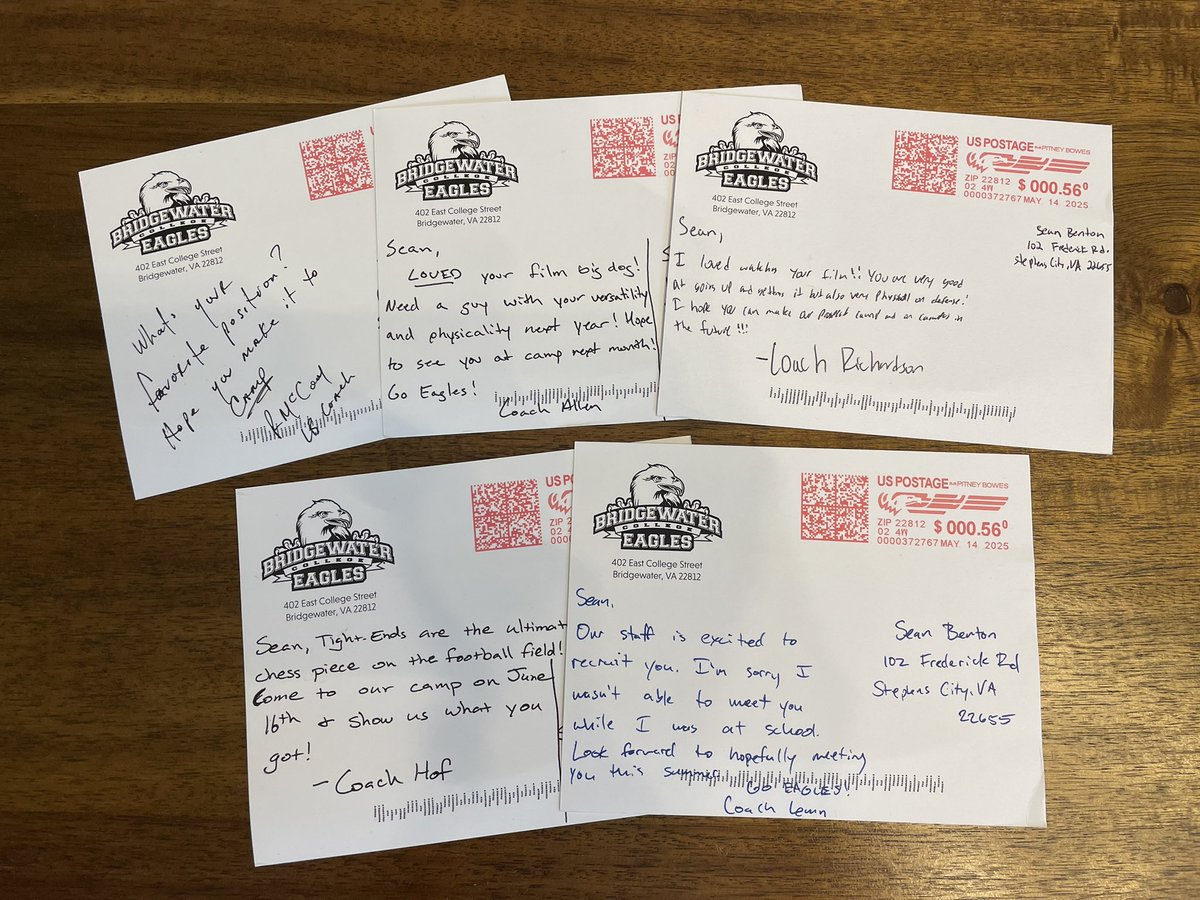 BRIDGEWATER
COLLEGE
EAGLES
402 East College Street
Bridgewater, VA 22812
US
What's your
favorite position?
Hope you make it to
CAMP
McCoy
Coach
BRIDGEWATER
COLLEGE
EAGLES
402 East College Street
Bridgewater, VA 22812
US PO
ZIP
02 4
0000
Sean,
LOVED your film big dog!
Need a guy with your versatility
and physicality next year! Hope
to see you at camp next month!
Go Eagles!
Coach Allen
BRIDGEWATER
COLLEGE
EAGLES
402 East College Street
Bridgewater, VA 22812
US POSTAGE PITNEY BOWES
ZIP 22812
02 4W $ 000.56⁰
0000372767 MAY 14 2025
Sean Benton
102 Frederick Rd.
Stephens City, VA 22655
Sean,
I loved watching your film!! You are very good
at going up and getting it but also very physical on defense!
I hope you can make our prospect camp on campus in
the future!!!
-Coach Richardson
BRIDGEWATER
COLLEGE
EAGLES
402 East College Street
Bridgewater, VA 22812
US PO
ZIP
02 4
0000
Sean, Tight-Ends are the ultimat
chess piece on the football field!
Come to our camp on June
16th & show us what you
got!
-Coach Hof
BRIDGEWATER
COLLEGE
EAGLES
402 East College Street
Bridgewater, VA 22812
US POSTAGE PITNEY BOWES
ZIP 22812
02 4W $ 000.56⁰
0000372767 MAY 14 2025
Sean Benton
102 Frederick Rd
Stephens City, VA
22655
Sean,
Our staff is excited to
recruit you. I'm sorry I
wasn't able to meet you
while I was at school.
Look forward to hopefully meeting
you this summer.
GO EAGLES!
Coach